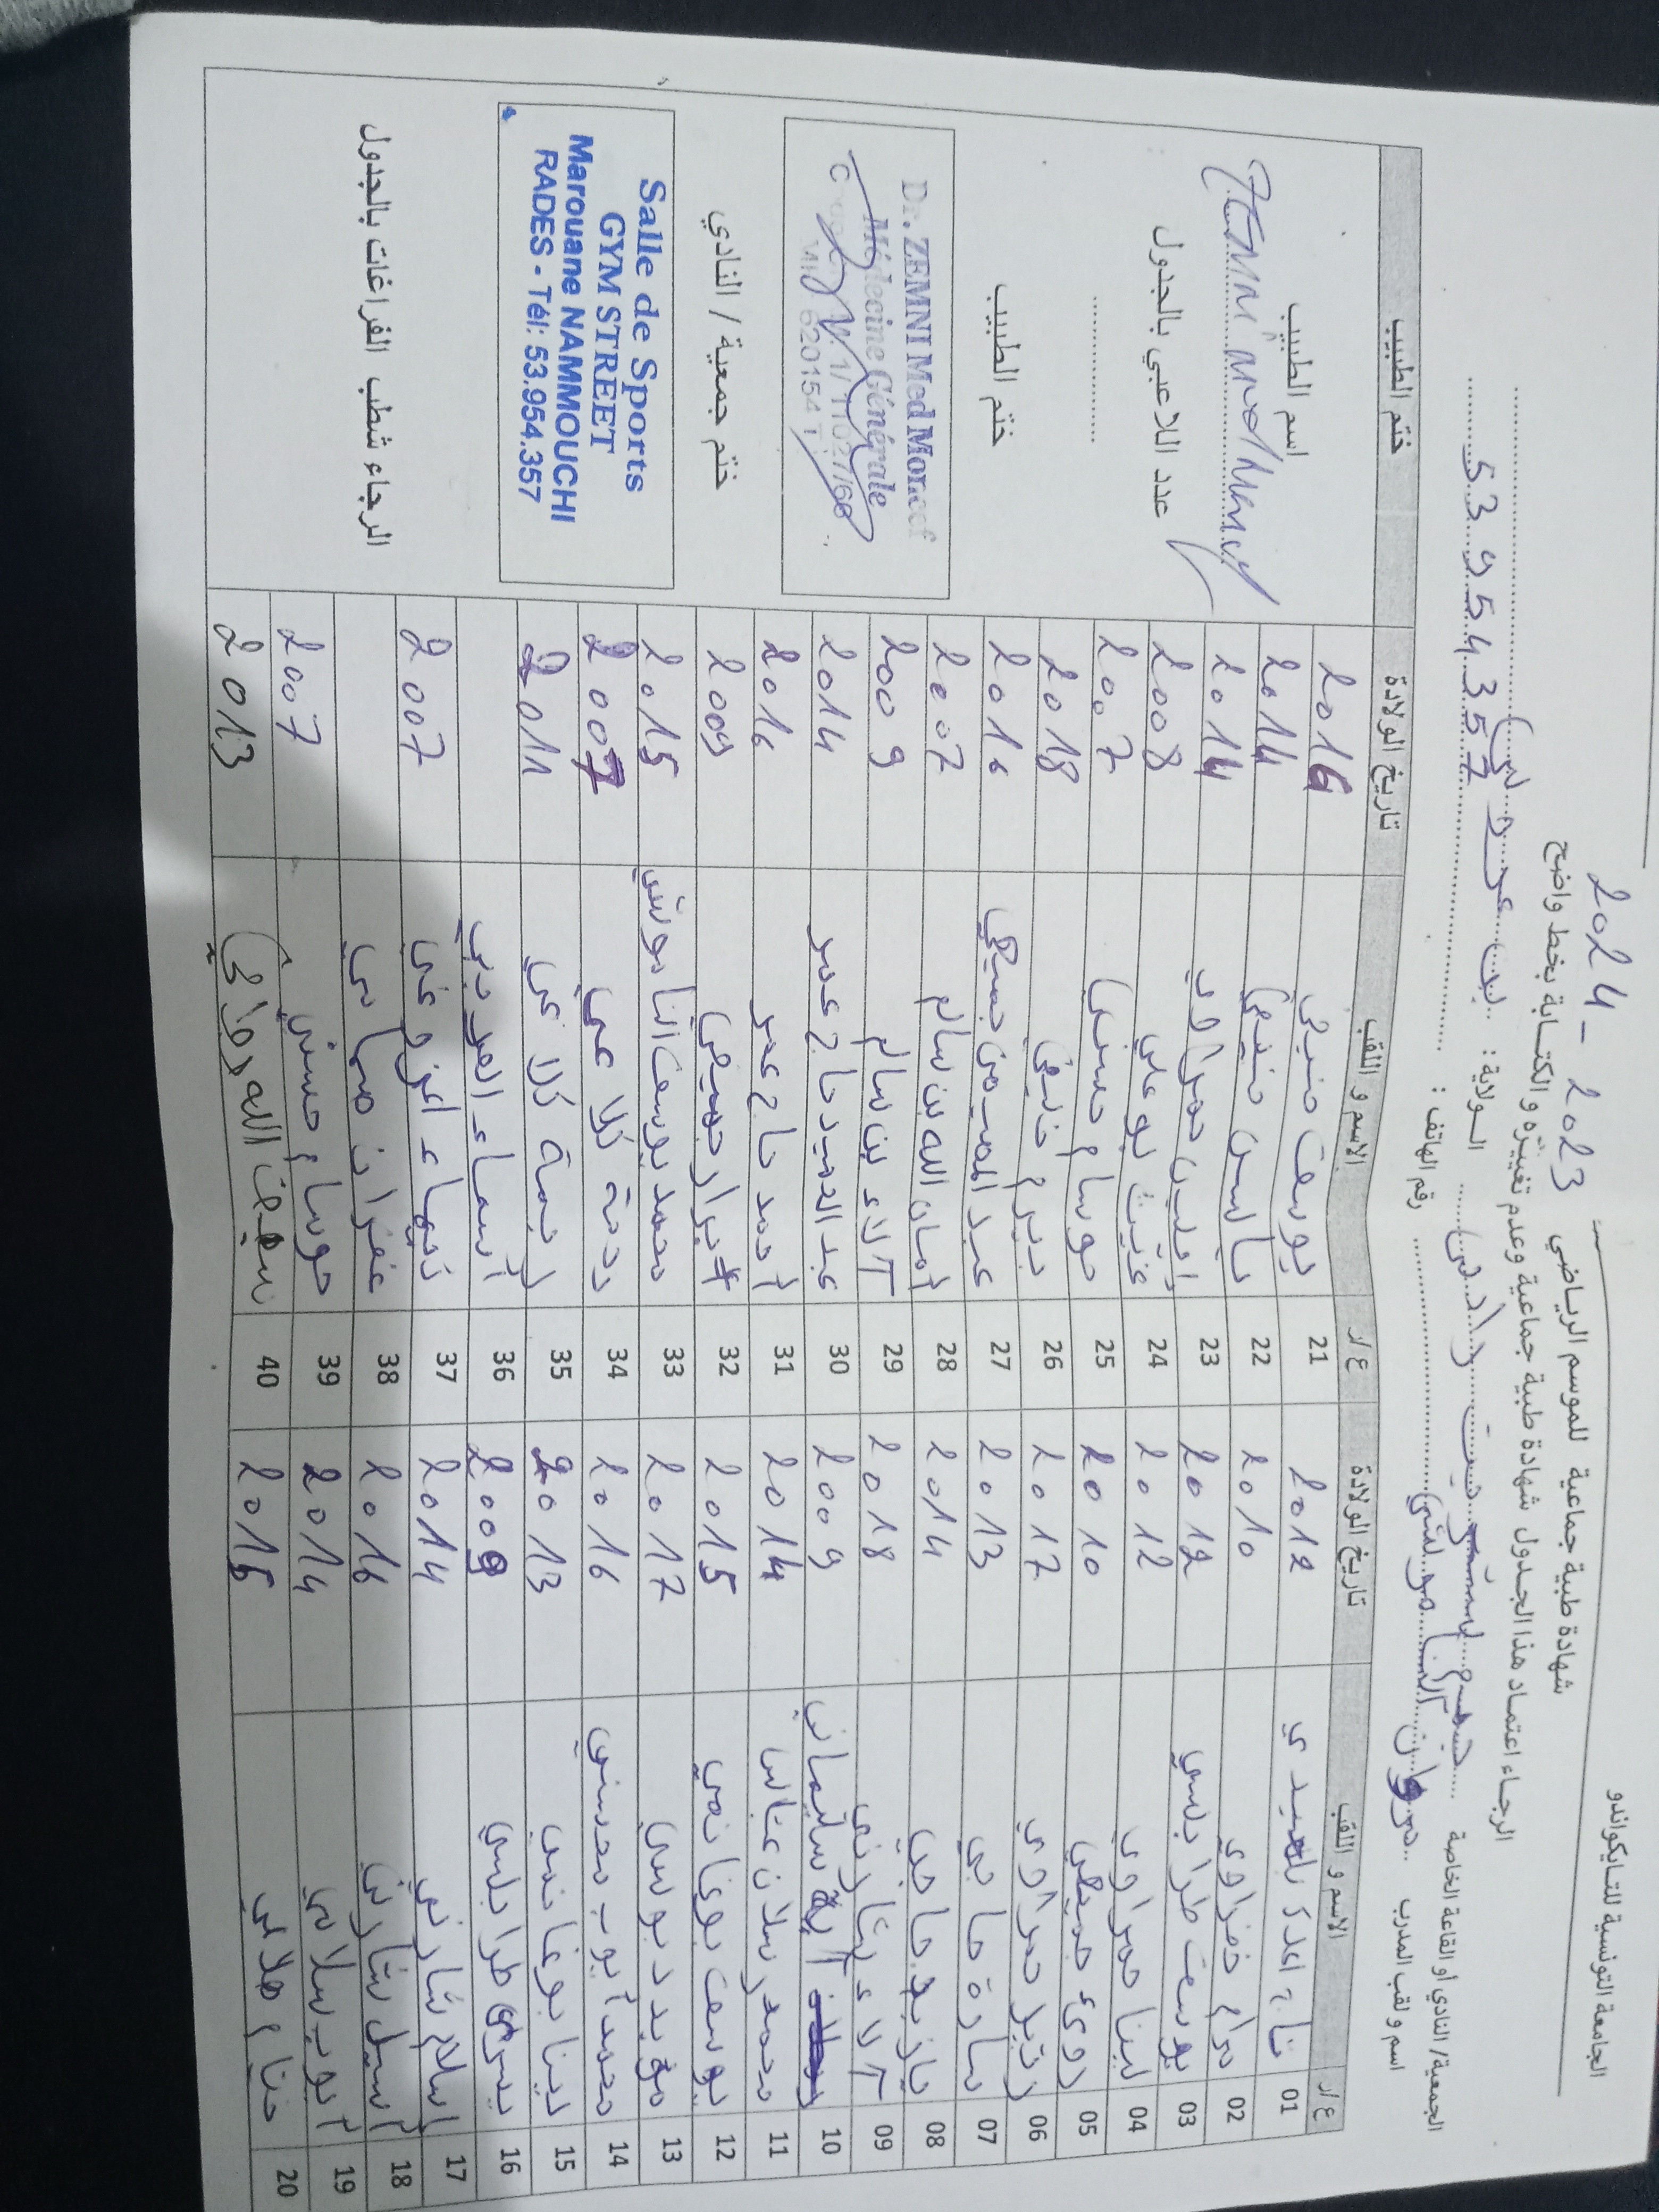 الجامعة التونسية للتايكواندو
شهادة طبية جماعية للموسم الرياضي 2023 - 2024
الرجاء اعتماد هذا الجدول شهادة طبية جماعية وعدم تغييره و الكتابة بخط واضح
الجمعية/ النادي أو القاعة الخاصة
الولاية : بن عروس
اسم و لقب المدرب مروان الناموشي
رقم الهاتف : 53954357
ع/ر الاسم و اللقب تاريخ الولادة ع/ر الاسم و اللقب تاريخ الولادة ختم الطبيب
01 2012 21 يوسف 2016
02 مرام خضراوي 2010 22 ياسين 2014
03 يوسف طرابلسي 2012 23 حمراوي 2014
04 لينا حمراوي 2012 24 بوعلي 2008
05 روىء جميعي 2010 25 حوسام حسني 2007
06 زبير حمراوي 2017 26 مريم خليفي 2018
07 سارة حاجي 2013 27 جميعي 2016
08 يازيد حاجي 2014 28 أمان الله بن سالم 2007
09 آلاء شارني 2018 29 آلاء بن سالم 2009
10 آية سليماني 2009 30 عبد الحميد حاج عمر 2014
11 محمد رسلان عباس 2014 31 أحمد حاج عمر 2016
12 يوسف بوغانمي 2015 32 أبرار جميعي 2009
13 مؤيد دبوسي 2017 33 محمد يوسف الناموشي 2015
14 محمد أيوب محسني 2016 34 رحمة كلاعي 2007
15 لينا بوغانمي 2013 35 بسمة كلاعي 2011
16 يسرى طرابلسي 2009 36 أسماء العبديبي
17 إسلام شارني 2014 37 2007
18 أسيل شارني 2016 38 غفران
19 أيوب سلامي 2014 39 حوسام حسني 2007
20 ختام هلالي 2015 40 سيف الله 2013
اسم الطبيب
Zemni Med Moncef
عدد اللاعبي بالجدول
ختم الطبيب
Dr. ZEMNI Med Moncef
Médecine Générale
ختم جمعية / النادي
Salle de Sports
GYM STREET
Marouane NAMMOUCHI
RADES - Tél: 53.954.357
الرجاء شطب الفراغات بالجدول